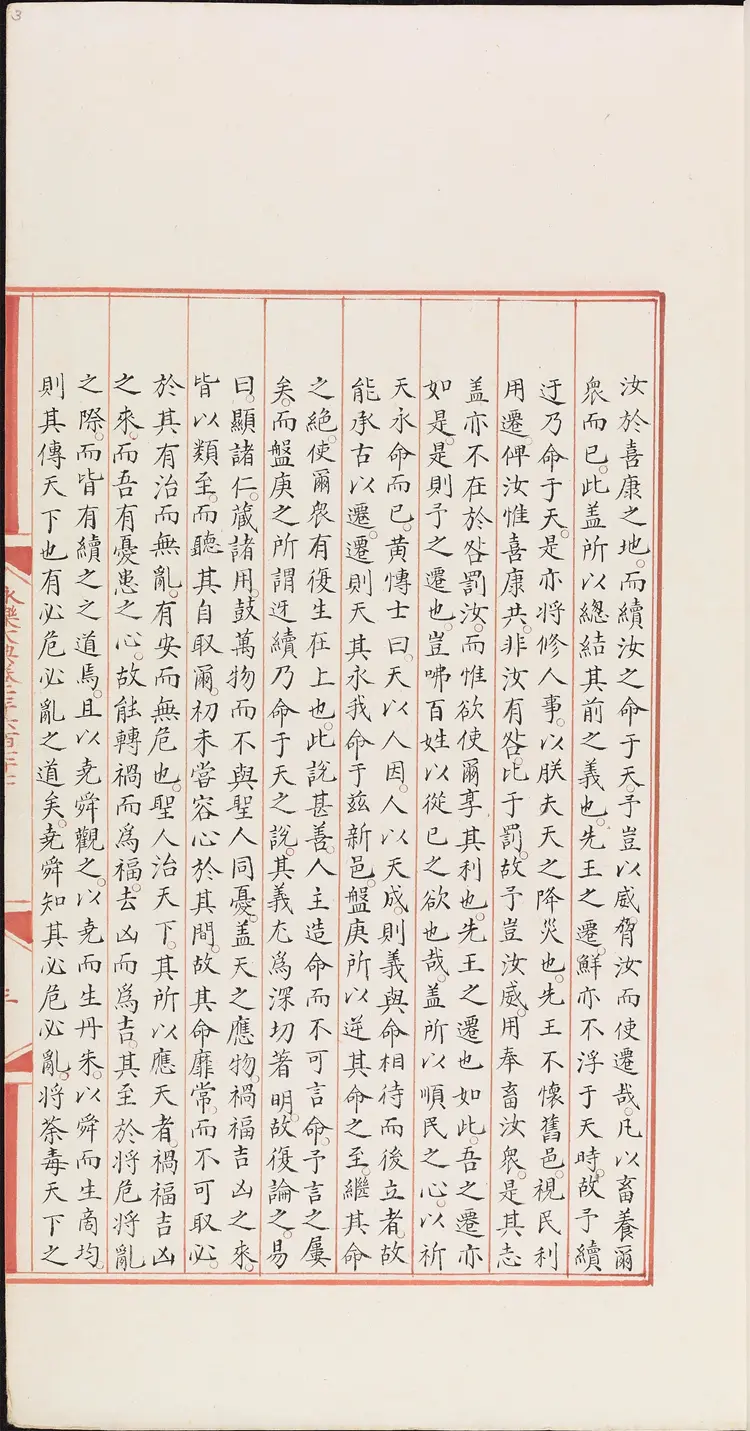 3
汝於喜康之地。而續汝之命于天。予豈以威脅汝而使遷哉。凡以畜養爾
衆而已。此盖所以總結其前之義也。先王之遷。鮮亦不浮于天時。故予續
迓乃命于天。是亦將修人事。以朕夫天之降災也。先王不懷舊邑。視民利
用遷。俾汝惟喜康共。非汝有咎。比于罰。故予豈汝威。用奉畜汝衆。是其志
盖亦不在於咎罰汝。而惟欲使爾享其利也。先王之遷也如此。吾之遷亦
如是。是則予之遷也。豈咈百姓以從已之欲也哉。盖所以順民之心。以祈
天永命而已。黄慱士曰。天以人因。人以天成。則義與命相待而後立者。故
能承古以遷。遷則天其永我命于茲新邑。盤庚所以逆其命之至。繼其命
之絶。使爾衆有復生在上也。此說甚善。人主造命而不可言命。予言之屢
矣。而盤庚之所謂迓續乃命于天之說。其義尤爲深切著明。故復論之。易
曰。顯諸仁。蔵諸用。鼓萬物而不與聖人同憂。盖天之應物。禍福吉凶之來。
皆以類至。而聽其自取爾。初未嘗容心於其間。故其命靡常。而不可取必。
於其有治而無亂。有安而無危也。聖人治天下。其所以應天者。禍福吉凶
之來。而吾有憂患之心。故能轉禍而爲福。去凶而爲吉。其至於將危將亂
之際。而皆有續之之道焉。且以堯舜觀之。以堯而生丹朱。以舜而生商均。
則其傳天下也有必危必亂之道矣。堯舜知其必危必亂。將荼毒天下之
三